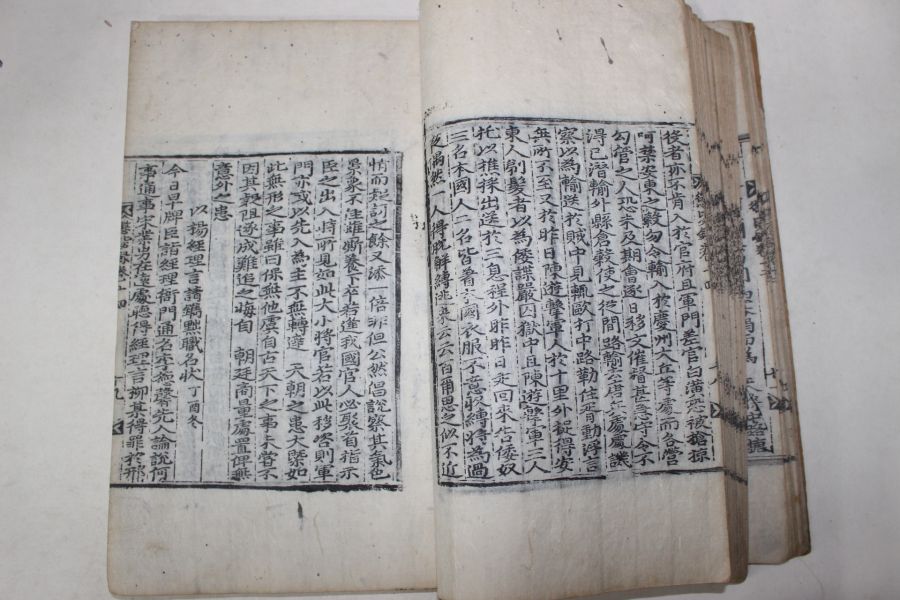 後者亦不肯入於官府且軍門差官白潢恐被搶掠
呵禁安東之穀勿令輸入於慶州大丘等處而急營
勾管之人恐未及期會逐日移文催督甚急守令不
得已潛輸外縣倉穀使之從間路輸至唐兵處處譏
察以為輸送於賊中且輒敺打中路勒住胥動浮言
無所不至又於昨日陳遊擊軍人於十里外捉得安
東人剔髮者以為倭諜嚴囚獄中且陳遊擊軍三人
托以樵採出送於三息程外昨昨日走回來告倭奴
三名本國人二名皆着本國衣服不意來縛將為過
夜偶然一人得脫解縛逃來云云百爾思之似不近
情而起訂之餘又添一倍非但公然倡說察其氣色
景象不佳雖廝養下卒若逢我國官人必聚首指示
臣之出入時所見如此大小將官若以此移咨則軍
門亦或以先入為主不無轉達 天朝之患大槩如
此無形之事雖曰保無他虞自古天下之事未嘗不
因其阻遂成難追之悔自 朝廷商量處置俾無
意外之患
以楊經理言請鐫黜職名狀 丁酉冬
今日早牌臣詣經理衙門通名字落先人論說何
事通事宋業男在遠處聽得經理言柳某得罪於邢
卷十四
九